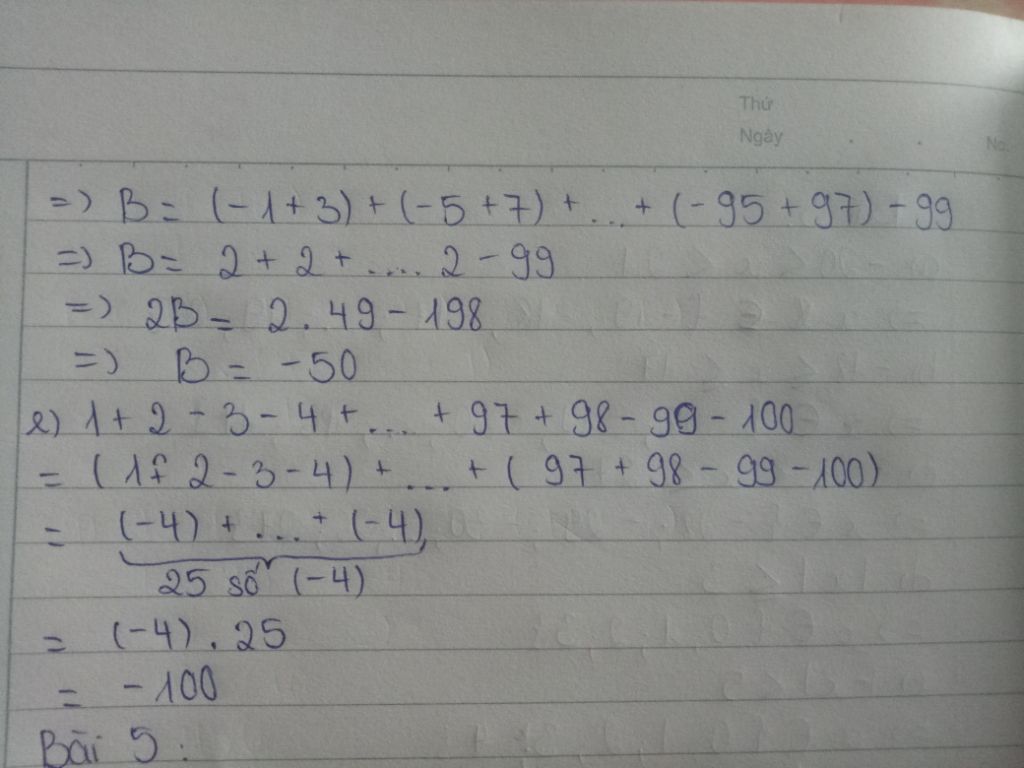 Thứ
Ngày
No.
=) B = (-1+3) + (-5+7) + ... + (-95 + 97) - 99
=) B = 2 + 2 + .... 2 - 99
=) 2B = 2 . 49 - 198
=) B = -50
e) 1 + 2 - 3 - 4 + ... + 97 + 98 - 99 - 100
= (1 + 2 - 3 - 4) + ... + ( 97 + 98 - 99 - 100)
= (-4) + ... + (-4)
25 số (-4)
= (-4) . 25
= -100
Bài 5 :